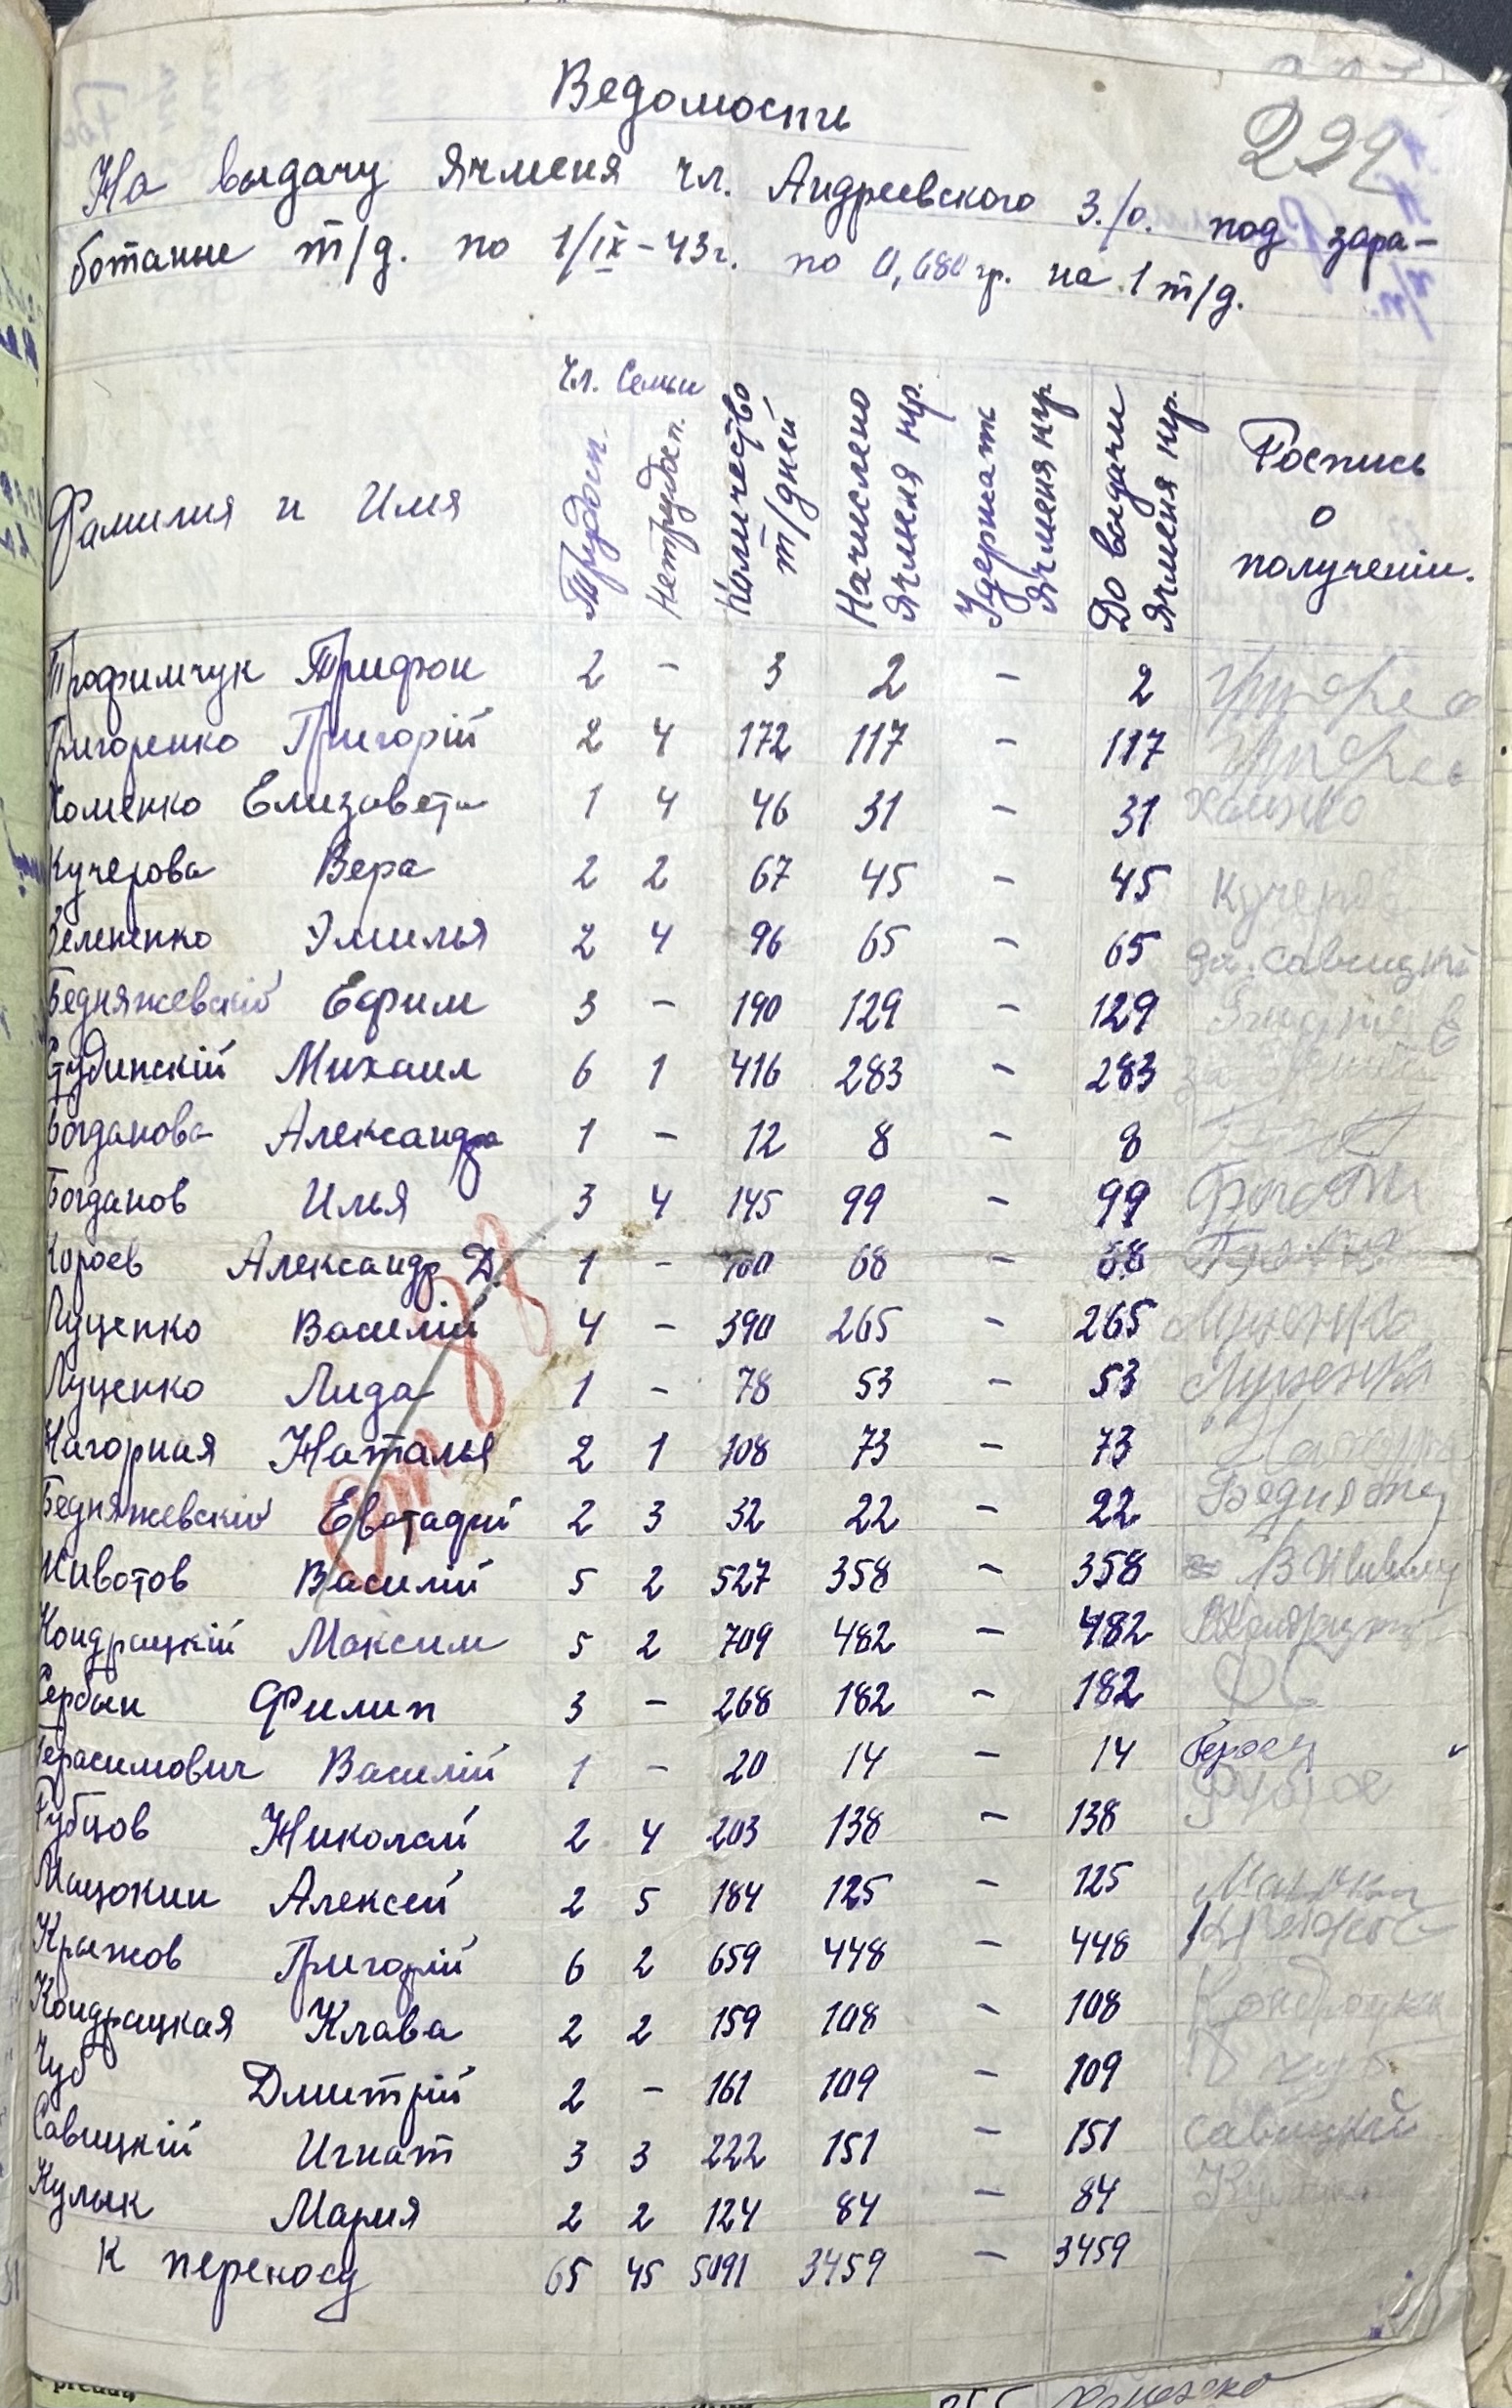 292
Ведомость
На выдачу ячменя чл. Андреевского З./о. под зара-
ботаные т/д. по 1/IX-43г. по 0,680 гр. на 1 т/д.
Фамилия и Имя
Чл. Семьи
Трудосп.
Нетрудосп.
Количество т/дней
Начислено ячменя кгр.
Удержать ячменя кгр.
До выдачи ячменя кгр.
Роспись о получении.
Трофимчук Трифон 2 - 3 2 - 2
Григоренко Григорій 2 4 172 117 - 117
Хоменко Елизавета 1 4 46 31 - 31 Хоменко
Кучерова Вера 2 2 67 45 - 45 Кучерова
Зелененко Эмилья 2 4 96 65 - 65 за Савицкий
Бедняжевскій Ефим 3 - 190 129 - 129
Студинскій Михаил 6 1 416 283 - 283
Богданова Александра 1 - 12 8 - 8
Богданов Илья 3 4 145 99 - 99
Короев Александр Д. 1 - 100 68 - 68
Луценко Василій 4 - 390 265 - 265 Луценко
Луценко Лида 1 - 78 53 - 53 Луценко
Нагорная Наталья 2 1 108 73 - 73
Бедняжевский Евстафій 2 3 32 22 - 22 Бедняже
Животов Василій 5 2 527 358 - 358
Кондрацкій Максим 5 2 709 482 - 482
Сербын Филип 3 - 268 182 - 182 ФС
Герасимович Василій 1 - 20 14 - 14 Герас
Рубцов Николай 2 4 203 138 - 138
Мацокин Алексей 2 5 184 125 - 125
Крыжов Григорій 6 2 659 448 - 448
Кондрацкая Клава 2 2 159 108 - 108 Кондрацка
Чуб Дмитрій 2 - 161 109 - 109 Чуб
Савицкій Игнат 3 3 222 151 - 151 Савицкий
Кулык Мария 2 2 124 84 - 84
К переносу 65 45 5091 3459 - 3459